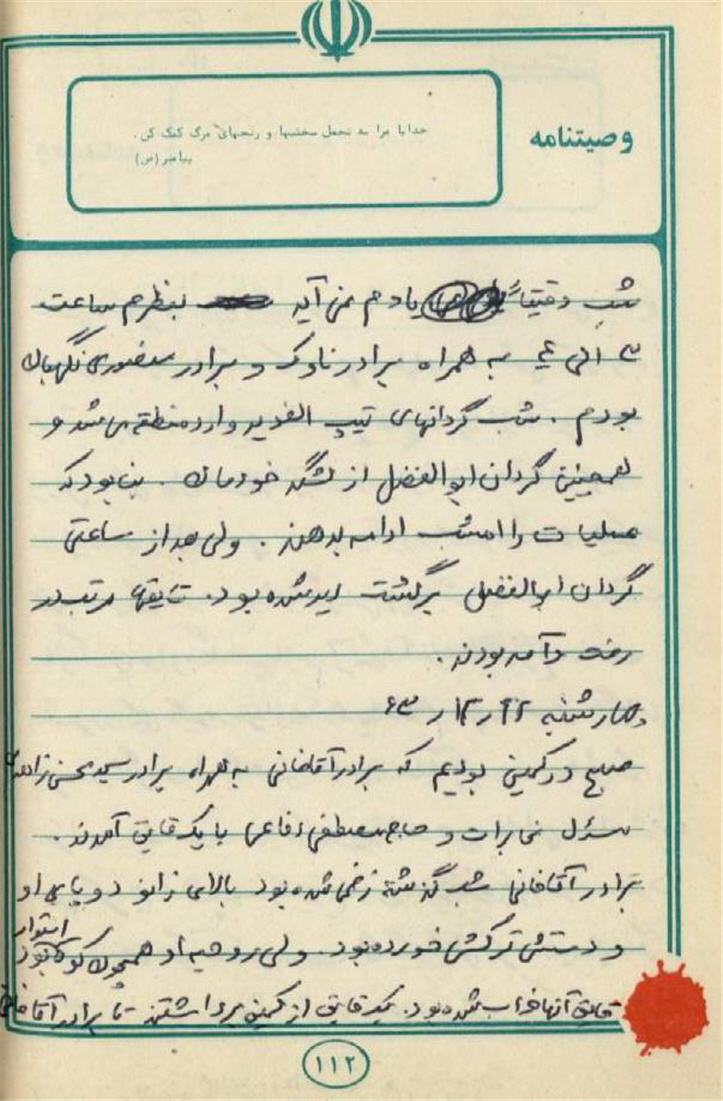 وصیتنامه
خدایا مرا به تحمل سختیها و رنجهای مرگ کمک کن.
پیامبر (ص)
شب دقیقاً یادم نمی‌آید بنظرم ساعت
۳ الی ۴ به همراه برادر ناوک و برادر منصوری نگهبان
بودم. شب گردانهای تیپ الغدیر وارد منطقه می‌شد و
همچنین گردان ابوالفضل از لشگر خودمان. بنا بود که
عملیات را امشب ادامه بدهند. ولی بعد از ساعتی
گردان ابوالفضل برگشت لو رفته بود. قایقها مرتب در
رفت و آمد بودند.
چهارشنبه ۲۲ر۱۲ر۶۳
صبح در کمین بودیم که برادر آقاخانی به همراه برادر سید محسن
مسئول مخابرات و حاج مصطفی با یک قایق آمدند.
برادر آقاخانی شب گذشته زخمی شده بود بالای زانو دو پای او
و دستش ترکش خورده بود. ولی روحیه او همچون کوه استوار بود
قایق آنها خراب شده بود. یک قایق از کمین برداشتند تا برادر آقاخانی
۱۱۲